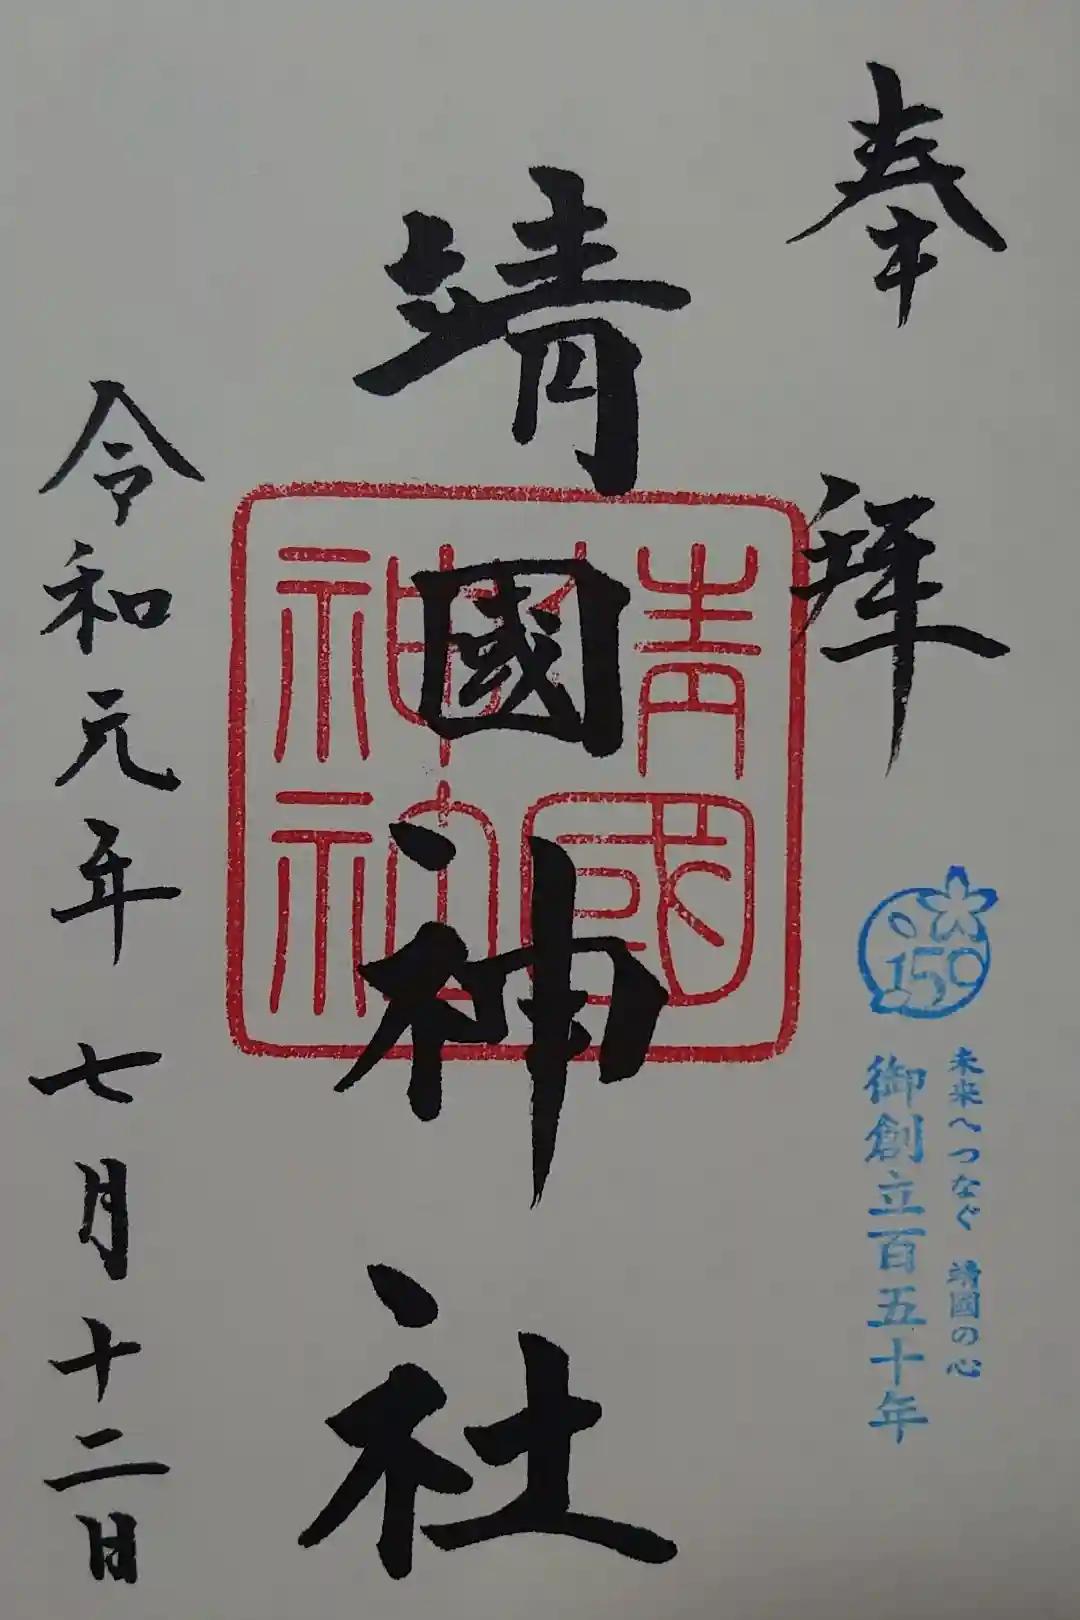 奉拜
150
未来へつなぐ 靖國の心
御創立百五十年
靖國神社
靖國神社
令和元年七月十二日